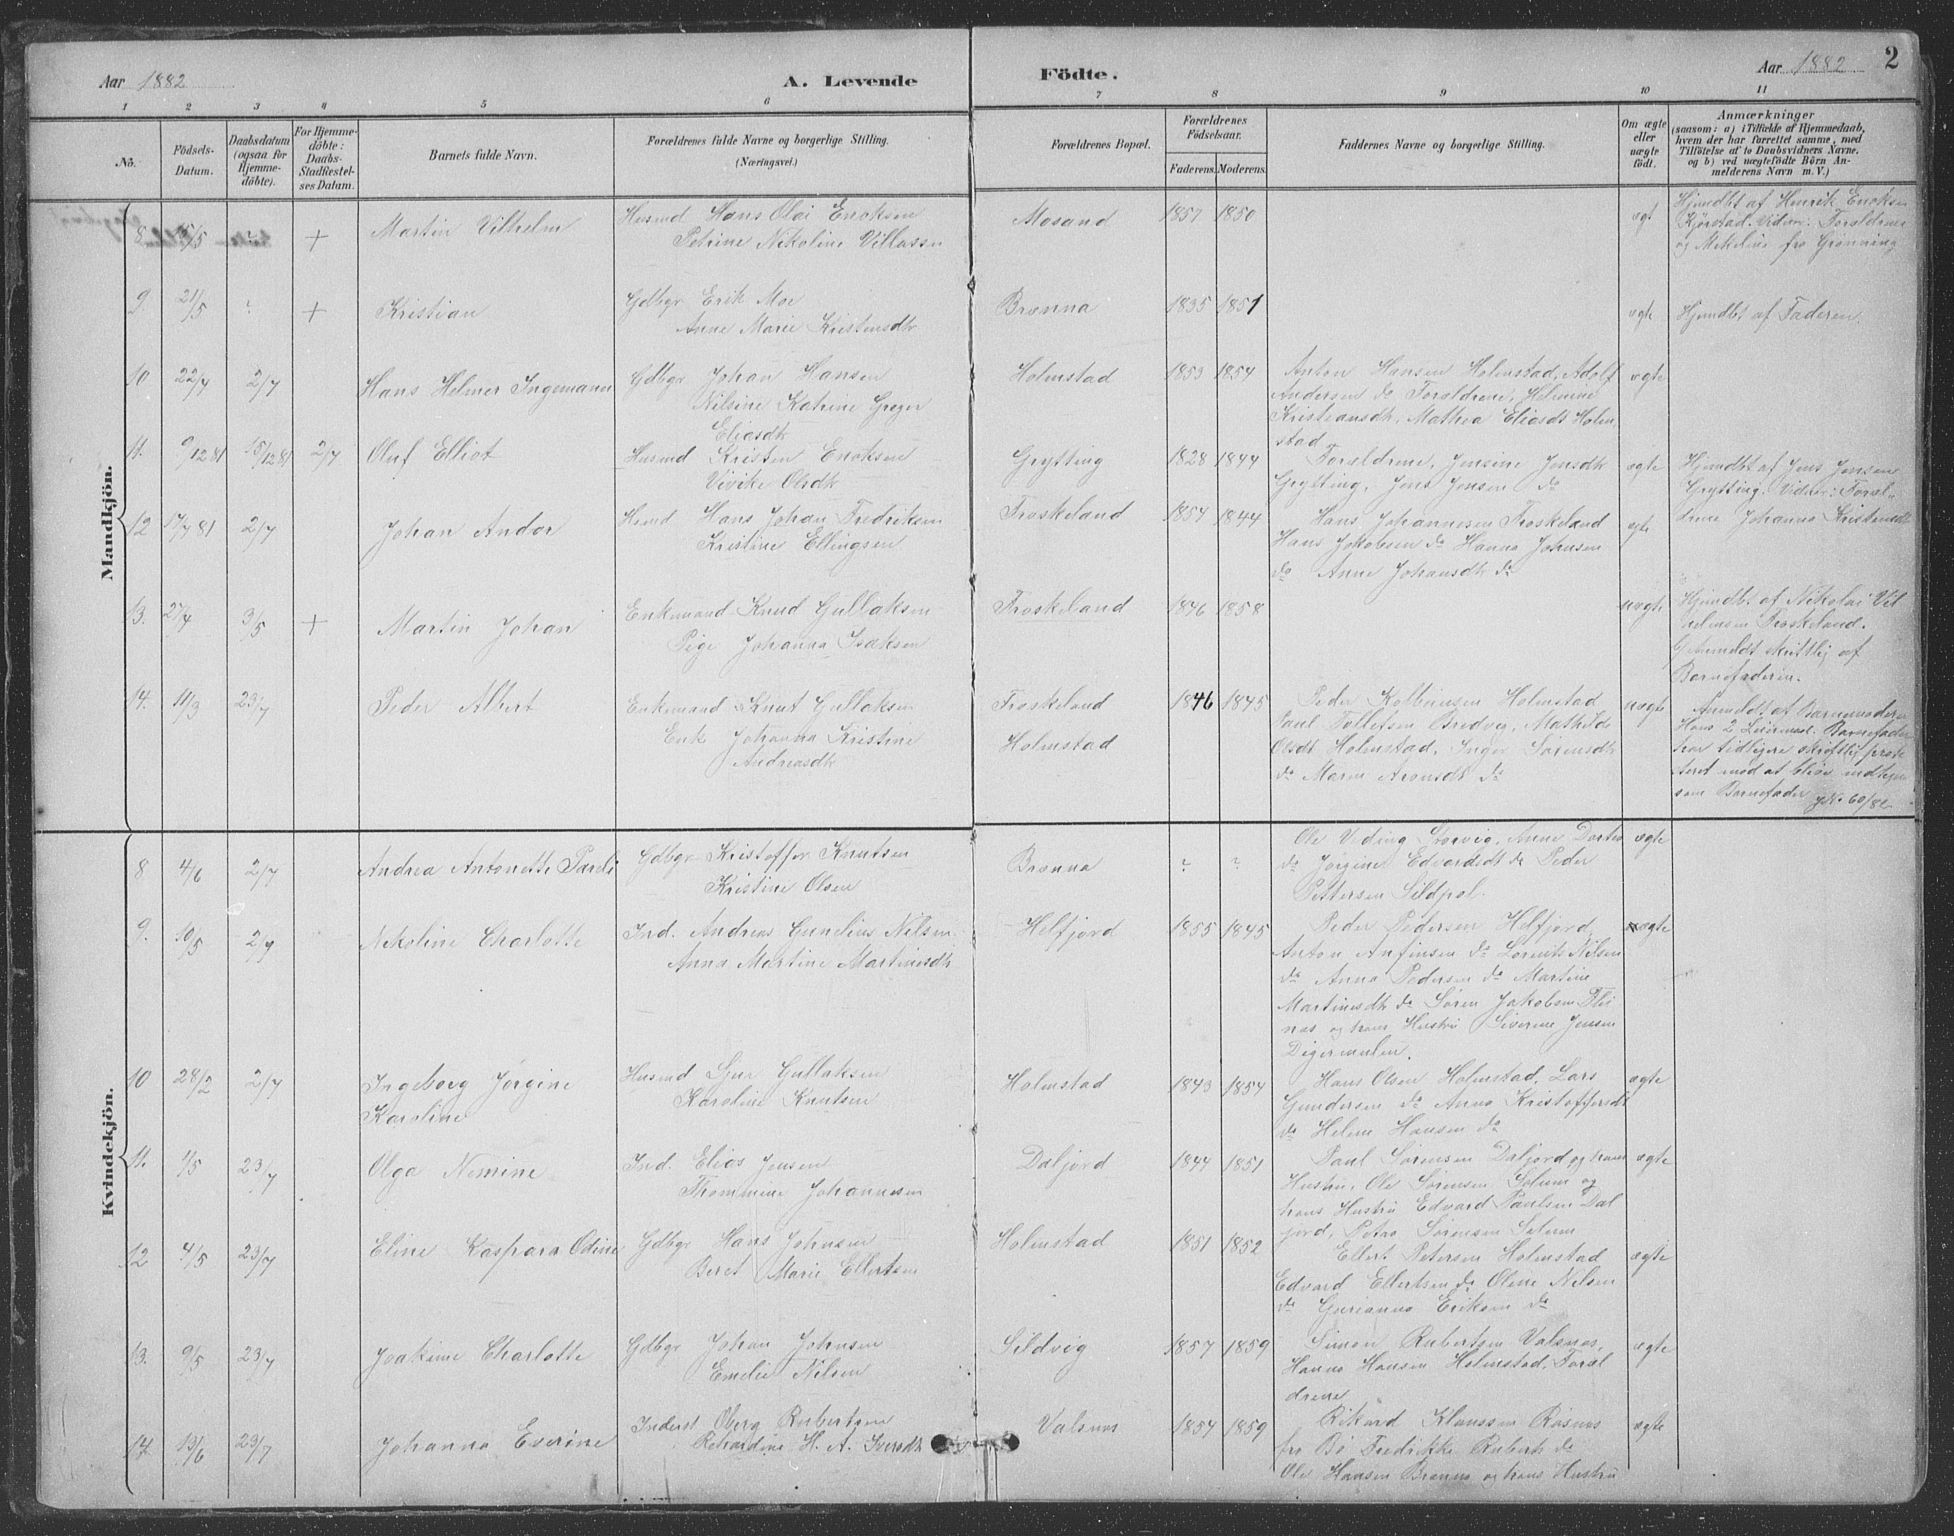 Aar 1882
A. Levende
Födte.
Aar 1882
2
1 2 3 4 5 6 7 8 9 10 11
No.
Födsels-
Datum.
Daabsdatum
(ogsaa for
Hjemme-
döbte).
For Hjemme-
döbte:
Daabs-
Stadfæstel-
ses Datum.
Barnets fulde Navn.
Forældrenes fulde Navne og borgerlige Stilling.
(Næringsvei.)
Forældrenes Bopæl.
Forældrenes
Födselsaar.
Faderens. Moderens.
Faddernes Navne og borgerlige Stilling.
Om ægte
eller
uægte
födt.
Anmærkninger
(saasom: a) i Tilfælde af Hjemmedaab,
hvem der har forrettet samme, med
Tilföielse af to Daabsvidners Navne.
og b) ved uægtefödte Börn An-
melderens Navn m. V.)
Mandkjön.
8 5/5 + Martin Vilhelm
Husmd Hans Olai Enoksen
Petrine Nikoline Villassn
Mosand 1857 1850 ægt
Hjmdbt af Henrik Enoksen
Kjørstad. Vidner: Forældrene
og Mekelius fra Grønning
9. 21/5 ? + Kristian
Gdbgr Erik Moe
Anne Marie Kristensdtr
Brønna 1835 1851 ægte
Hjmdbt af Faderen.
10 22/4 2/7 Hans Helmer Ingemann
Gdbgr Johan Hansen
Nilsine Katrine Greger
Eliasdtr
Holmstad 1853 1854
Anton Hansen Holmstad, Adolf
Andersen do Forældrene, Helmine
Kristiansdtr, Mathea Eliasdt Holm
stad
ægte
11. 9/12 81 15/12 81 2/7 Oluf Elliot
Husmd Kristen Enoksen
Vivike Olsdtr
Grytting 1828 1844
Forældrene, Jensine Jensdtr
Grytting, Jens Jensen do
ægte
Hjmdbt af Jens Jensen
Grytting. Vidner: Foræl-
drene Johanna Kristensdt
12 17/7 81 2/7 Johan Andor
Husmd Hans Johan Fredriksen
Kristine Ellingsen
Froskeland 1854 1844
Hans Johannesen Froskeland
Hans Jakobsen do Hanna Johnsen
do Anne Johansdtr do
ægte
13. 27/4 3/5 + Martin Johan
Enkemand Knud Gullaksen
Pige Johanna Isaksen
Froskeland 1846 1858 uægte
Hjmdbt af Nikolai Vil
helmsen Froskeland.
Anmeldt skriftlig af
Barnefaderen.
14. 11/3 23/7 Peder Albert
Enkemand Knut Gullaksen
Enk Johanna Kristine
Andreasdtr
Froskeland
Holmstad
1846 1845
Peder Kolbensen Holmstad
Paul Tollefsen Bredvig, Mathilde
Olsdt Holmstad, Inger Sørensdtr
do Maren Aronsdt do
uægte
Anmeldt af Barnemoderen
Hans 2 Leiermaal. Barnefaderen
har tidligere skriftlig prote
steret mod at blive indtegnet
som Barnefader JNo 60/82
Kvindekjön.
8 4/6 2/7 Andrea Antonette
Gdbgr Kristoffer Knutsen
Kristine Olsen
Brønna ? ?
Ole Viding Storvig, Anne Dortea
do Jørgine Edvardsdt do Peder
Pettersen Sildpol.
ægte
9. 10/5 2/7 Nikoline Charlotte
Ind. Andreas Cunelius Nilsen
Anna Martine Martinsdtr
Helfjord 1855 1845
Peder Pedersen Helfjord,
Anton Anfinsen do Lorents Nilsen
do Anna Pedersen do Martine
Martinsdtr do Søren Jakobsen Flei
nes og hans Hustru Siverine Jensen
Digermulen.
ægte
10 28/2 2/7 Ingeborg Jørgine
Karoline
Husmd Sjur Gullaksen
Karoline Knutsen
Holmstad 1843 1854
Hans Olsen Holmstad, Lars
Gundersen do Anna Kristoffersdt
do Helene Hansen do
ægte
11. 1/5 23/7 Olga Nemine
Ind. Elias Jensen
Thommine Johannesen
Daljord 1844 1851
Paul Sørensen Daljord og hans
Hustru, Ole Sørensen Solum og
hans Hustru Edvard Paulsen Dal
jord, Petra Sørensen Solum
ægte
12 4/5 23/7 Eline Kaspara Odine
Gdbgr Hans Johnsen
Beret Marie Ellertsen
Holmstad 1851 1852
Ellert Petersen Holmstad
Edvard Ellertsen do Oline Nilsen
do Gurianna Eriksen do
ægte
13. 9/5 23/7 Joakime Charlotte
Gdbgr Johan Johnsen
Emelie Nilsen
Sildvig 1857 1859
Simon Rubertsen Valsnes,
Hanna Hansen Holmstad, Foræl
drene
ægte
14. 13/6 23/7 Johanna Eserine
Inderst Oberg Rubertsen
Rikardine H. A. Iversdtr
Valsnes 1854 1859
Rikard Klaussen Røsnes
fra Bø Fredrikke Ruberts do
Ole Hansen Brønna og hans Hustru
ægte